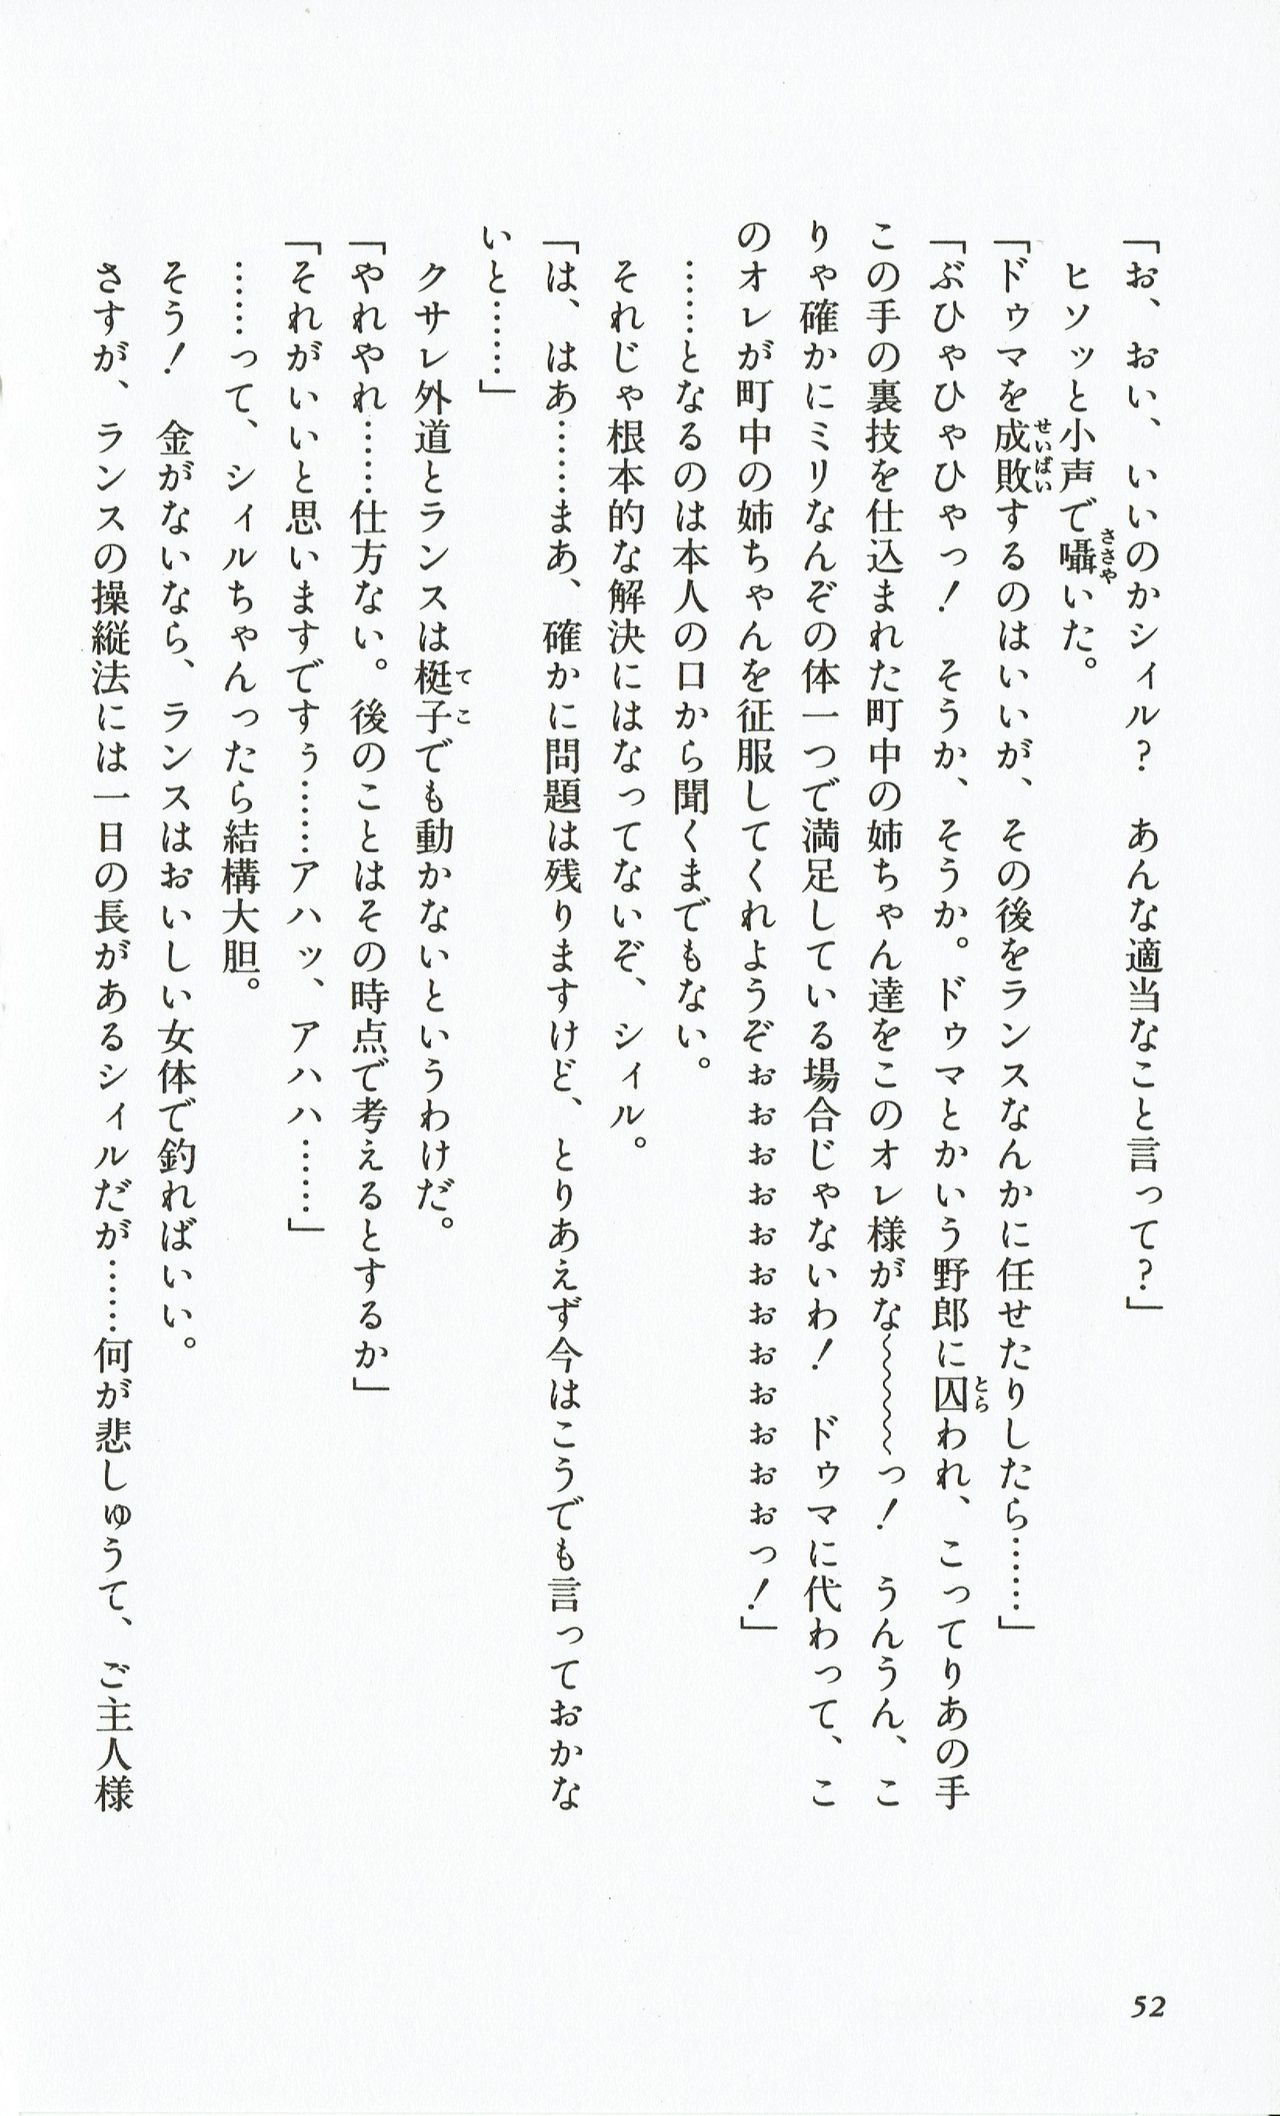 「お、おい、いいのかシィル？　あんな適当なこと言って？」
　ヒソッと小声で囁いた。
「ドゥマを成敗するのはいいが、その後をランスなんかに任せたりしたら……」
「ぶひゃひゃひゃっ！　そうか、そうか。ドゥマとかいう野郎に囚われ、こってりあの手
この手の裏技を仕込まれた町中の姉ちゃん達をこのオレ様がな〜〜〜〜っ！　うんうん、こ
りゃ確かにミリなんぞの体一つで満足している場合じゃないわ！　ドゥマに代わって、こ
のオレが町中の姉ちゃんを征服してくれようぞぉぉぉぉぉぉぉぉぉぉぉぉっ！」
　……となるのは本人の口から聞くまでもない。
　それじゃ根本的な解決にはなってないぞ、シィル。
「は、はあ……まあ、確かに問題は残りますけど、とりあえず今はこうでも言っておかな
いと……」
　クサレ外道とランスは梃子でも動かないというわけだ。
「やれやれ……仕方ない。後のことはその時点で考えるとするか」
「それがいいと思いますですぅ……アハッ、アハハ……」
　……って、シィルちゃんったら結構大胆。
　そう！　金がないなら、ランスはおいしい女体で釣ればいい。
　さすが、ランスの操縦法には一日の長があるシィルだが……何が悲しゅうて、ご主人様
52